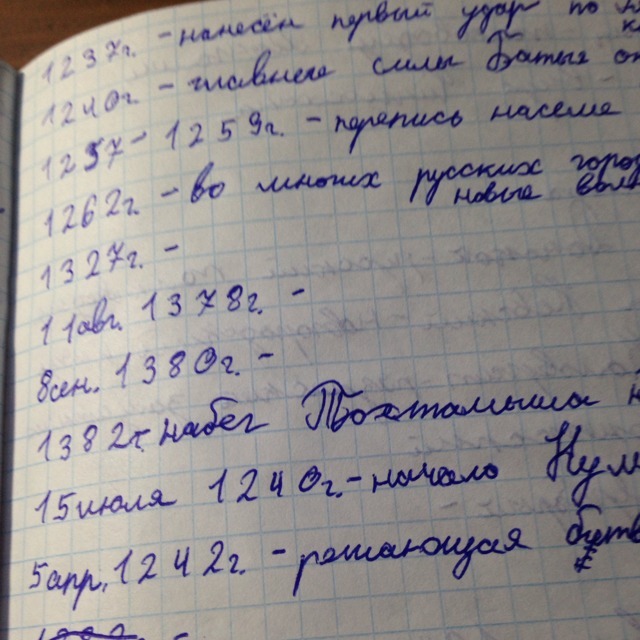 1237г. - нанесён первый удар по
1240г. - главные силы Батыя
1257 - 1259г. - перепись населе
1262г. - во многих русских город
новые
1327г. -
11авг. 1378г. -
8сен. 1380г. -
1382г. набег Тохтамыша
15июля 1240г. - начало
5апр. 1242г. - решающая битв